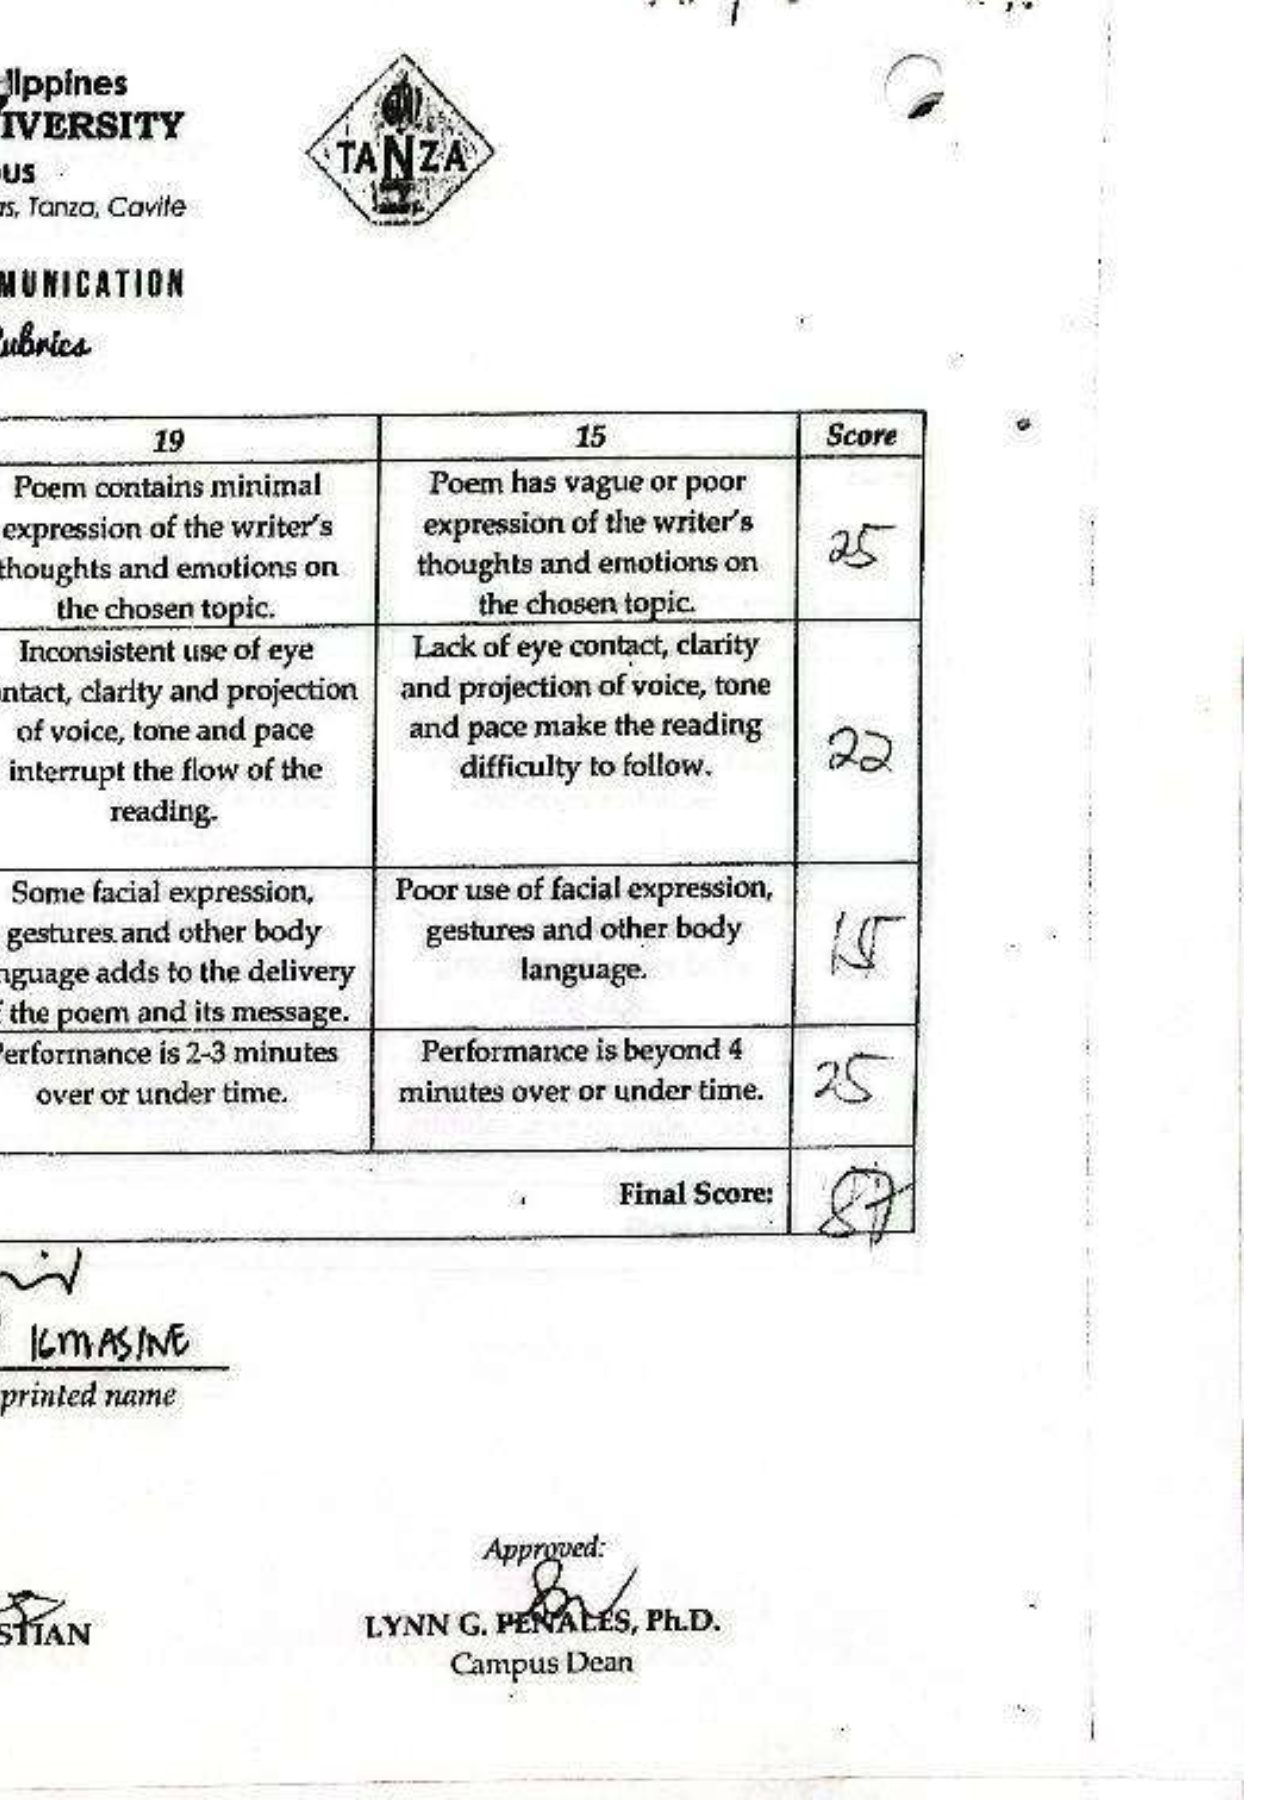 lippines
IVERSITY
ous
as, Tanza, Cavite
TANZA
MUNICATION
Rubrics
19 15 Score
Poem contains minimal
expression of the writer's
thoughts and emotions on
the chosen topic.
Poem has vague or poor
expression of the writer's
thoughts and emotions on
the chosen topic.
25
Inconsistent use of eye
ntact, clarity and projection
of voice, tone and pace
interrupt the flow of the
reading.
Lack of eye contact, clarity
and projection of voice, tone
and pace make the reading
difficulty to follow.
22
Some facial expression,
gestures and other body
nguage adds to the delivery
f the poem and its message.
Poor use of facial expression,
gestures and other body
language.
15
Performance is 2-3 minutes
over or under time.
Performance is beyond 4
minutes over or under time.
25
Final Score: 87
IGMASINE
printed name
Approved:
STIAN
LYNN G. PENALES, Ph.D.
Campus Dean